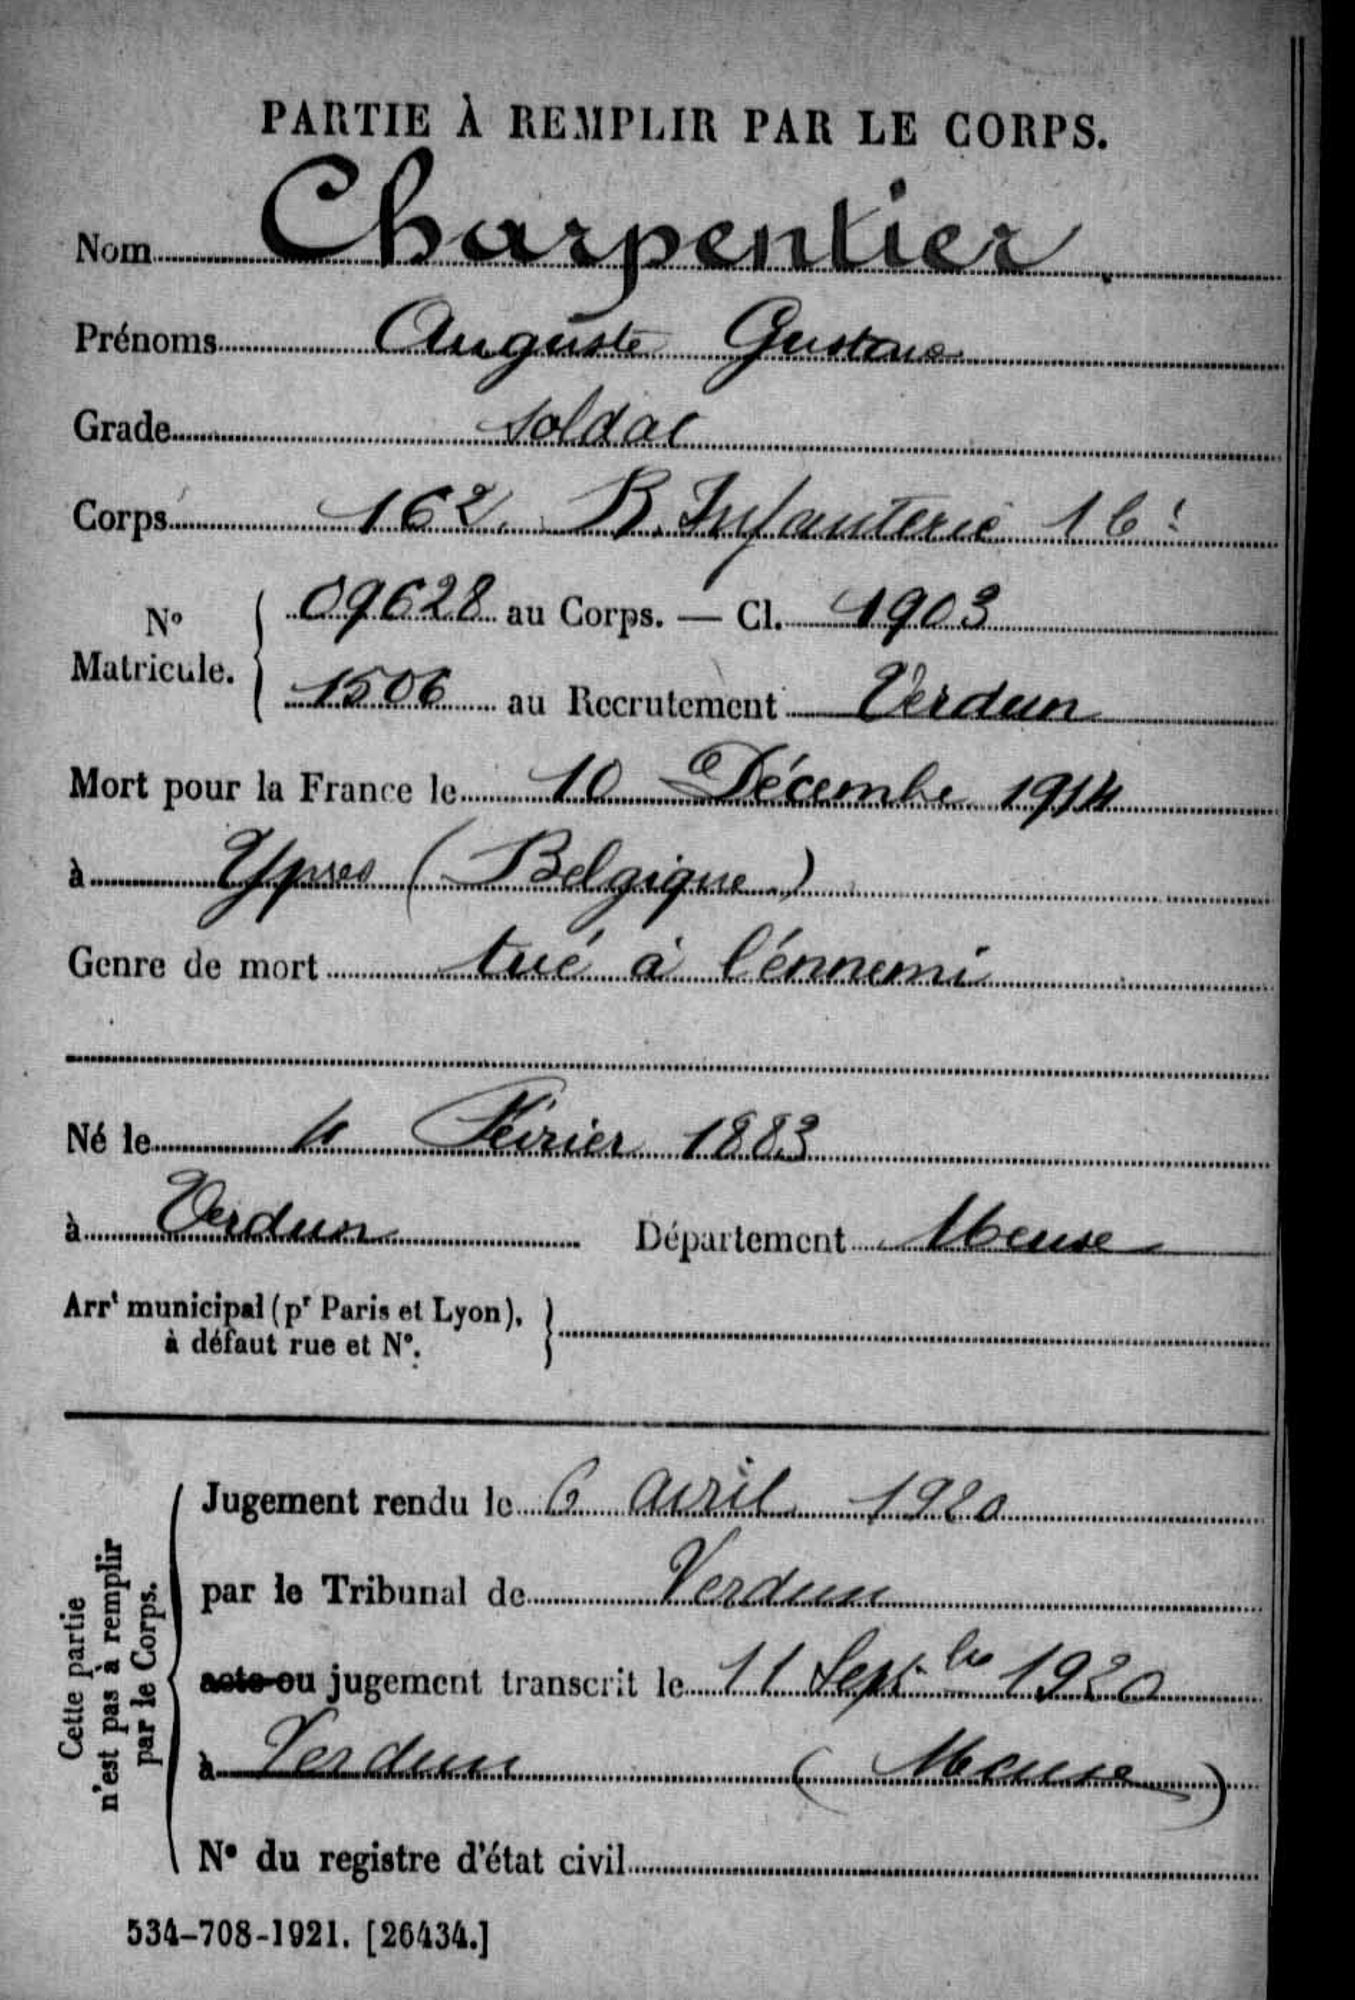 PARTIE À REMPLIR PAR LE CORPS.
Nom Charpentier
Prénoms Auguste Gustave
Grade Soldat
Corps 162. R. Infanterie
N° Matricule. 09628 au Corps. — Cl. 1903
1506 au Recrutement Verdun
Mort pour la France le 10 Décembre 1914
à Ypres (Belgique)
Genre de mort tué à l'énnemi
Né le 4 Février 1883
à Verdun Département Meuse
Arrt municipal (pr Paris et Lyon),
à défaut rue et N°.
Cette partie
n'est pas à remplir
par le Corps.
Jugement rendu le 6 avril 1920
par le Tribunal de Verdun
acte ou jugement transcrit le 11 Sept.bre 1920
à Verdun (Meuse)
N° du registre d'état civil
534-708-1921. [26434.]